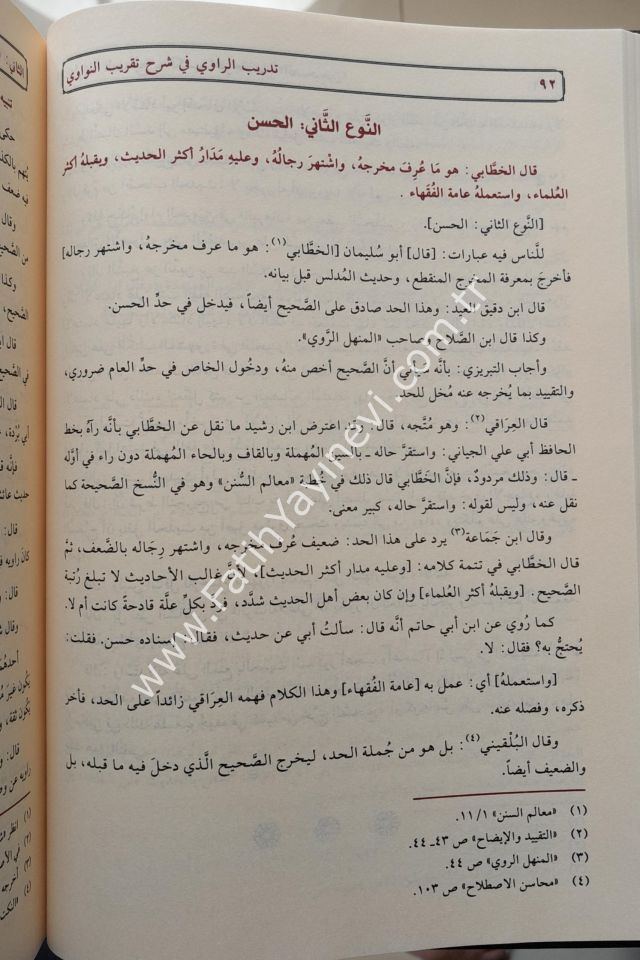 ٩٢
تدريب الراوي في شرح تقريب النواوي
النَّوع الثَّاني: الحسن
قال الخطَّابي: هو مَا عُرِفَ مخرجهُ، واشْتهرَ رجالُهُ، وعليهِ مَدَارُ أكثر الحديث، ويقبلهُ أكثر
العُلماء، واستعملهُ عامة الفُقَهاء .
[النَّوع الثاني: الحسن].
للَّناس فيه عبارات: [قال] أبو سُليمان [الخطَّابي (١): هو ما عرف مخرجهُ، واشتهر رجاله]
فأخرجَ بمعرفة المخرج المنقطع، وحديث المُدلس قبل بيانه.
قال ابن دقيق العيد: وهذا الحد صادق على الصَّحيح أيضاً، فيدخل في حدِّ الحسن.
وكذا قال ابن الصَّلاح وصاحب «المنهل الرَّوي».
وأجاب التبريزي: بأنَّه سَيأتي أنَّ الصَّحيح أخص منهُ، ودخُول الخاص في حدِّ العام ضروري،
والتقييد بما يُخرجه عنه مُخل للحد.
قال العِرَاقي (٢): وهو مُتَّجه، قال: وقد اعترض ابن رشيد ما نقل عن الخطَّابي بأنَّه رآهُ بخط
الحافظ أبي علي الجياني: واستقرَّ حاله ـ بالسين المُهملة وبالقاف وبالحاء المُهملة دون راء في أوَّله
ـ قال: وذلك مردودٌ، فإنَّ الخَطَّابي قال ذلك في خطبة «معالم السُّنن» وهو في النُّسخ الصَّحيحة كما
نقل عنه، وليس لقوله: واستقرَّ حاله، كبير معنى.
وقال ابن جَمَاعة (٣) يرد على هذا الحد: ضعيف عُرف مخرجه، واشتهر رِجَاله بالضَّعف، ثمَّ
قال الخطَّابي في تتمة كلامه: [وعليه مدار أكثر الحديث]، لأنَّ غالب الأحاديث لا تبلغ رُتبة
الصَّحيح. [ويقبلهُ أكثر العُلماء] وإن كان بعض أهل الحديث شدَّد، فردَّ بكلِّ علَّة قادحةً كانت أم لا.
كما رُوي عن ابن أبي حاتم أنَّه قال: سألتُ أبي عن حديث، فقال: إسناده حسن. فقلت:
يُحتجُّ به؟ فقال: لا.
[واستعملهُ] أي: عمل به [عامة الفُقهاء] وهذا الكلام فهمه العِرَاقي زائداً على الحد، فأخر
ذكره، وفصله عنه.
وقال البُلْقيني (٤): بل هو من جُملة الحد، ليخرج الصَّحيح الَّذي دخلَ فيه ما قبله، بل
والضعيف أيضاً.
(١) «معالم السنن» ١/ ١١.
(٢) «التقييد والإيضاح» ص ٤٣ـ ٤٤.
(٣) «المنهل الروي» ص ٤٤.
(٤) «محاسن الاصطلاح» ص ١٠٣.
www.FatihYayinevi.com.tr